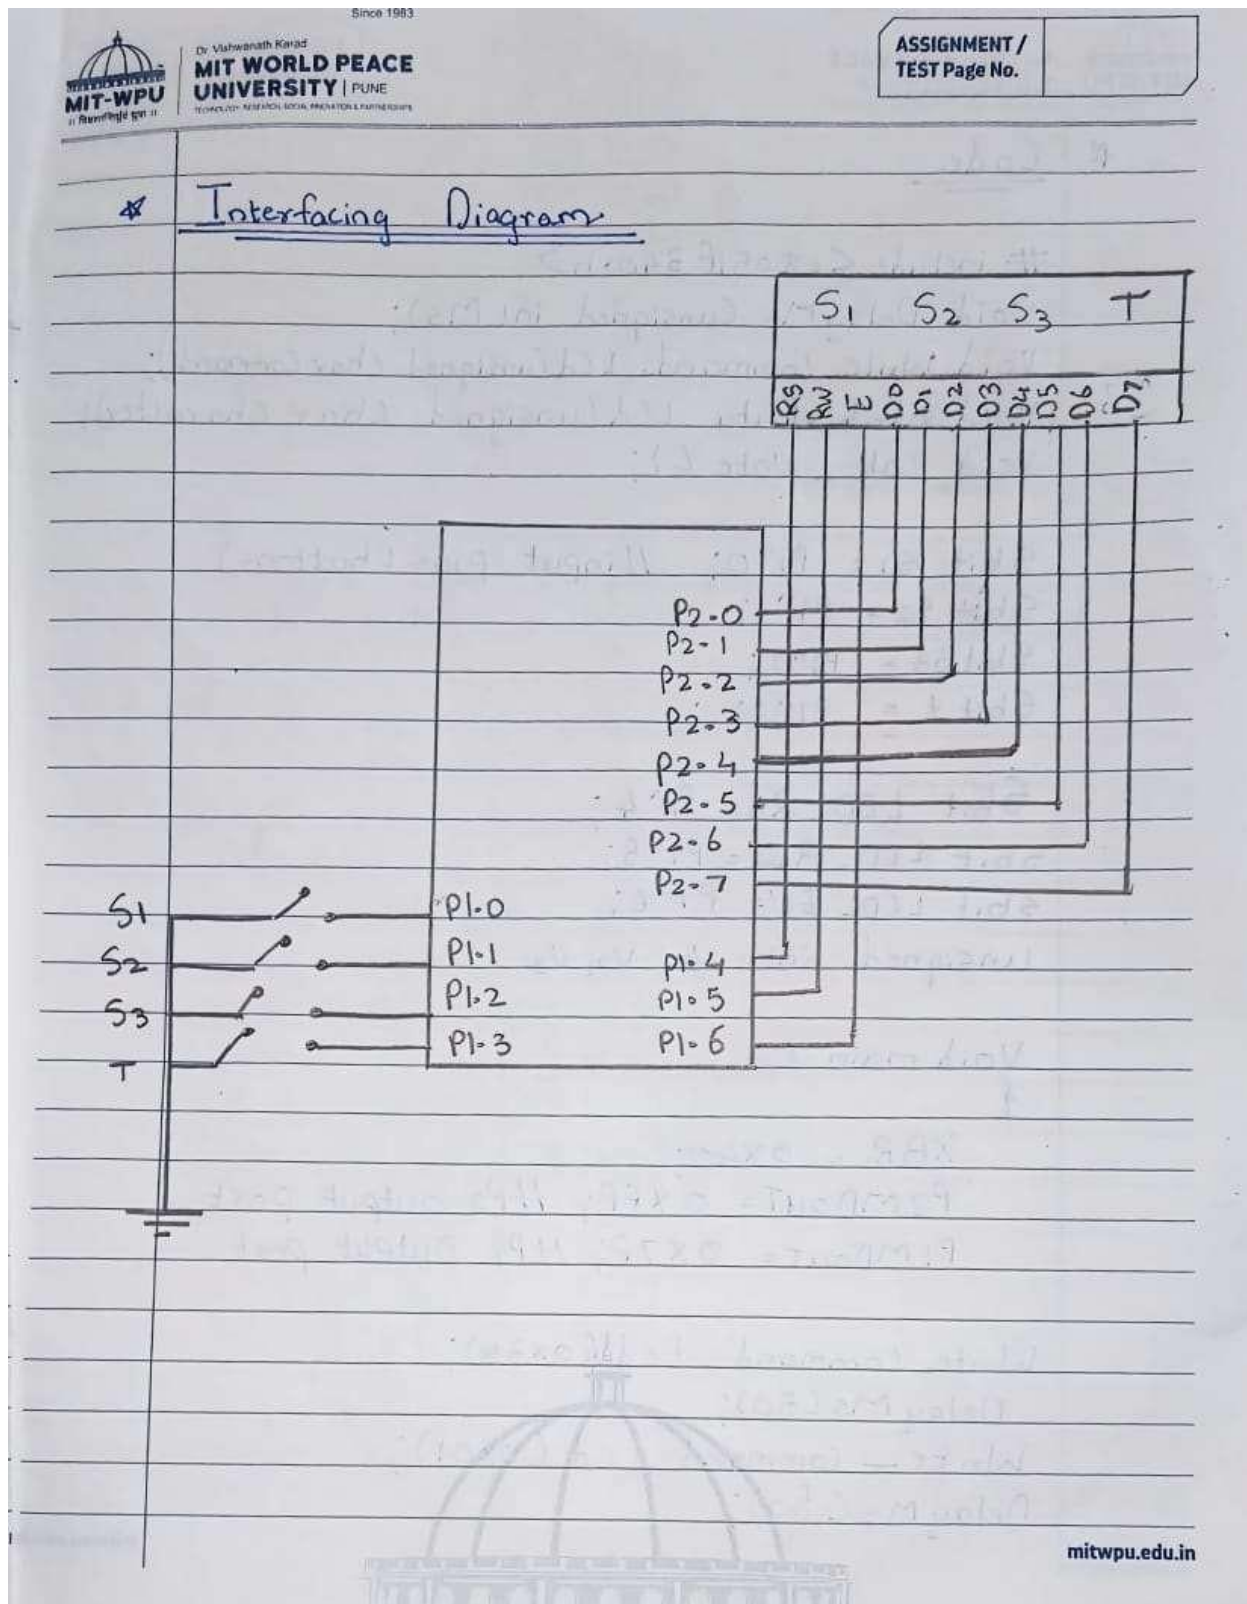 Since 1983
Dr Vishwanath Karad
MIT WORLD PEACE
UNIVERSITY | PUNE
TECHNOLOGY, RESEARCH, SOCIAL INNOVATION & PARTNERSHIPS
MIT-WPU
ASSIGNMENT /
TEST Page No.
Interfacing Diagram
S1 S2 S3 T
RS RW E D0 D1 D2 D3 D4 D5 D6 D7
P2.0
P2-1
P2.2
P2.3
P2.4
P2.5
P2.6
P2-7
S1 P1.0
S2 P1.1 P1.4
S3 P1.2 P1.5
T P1.3 P1.6
mitwpu.edu.in